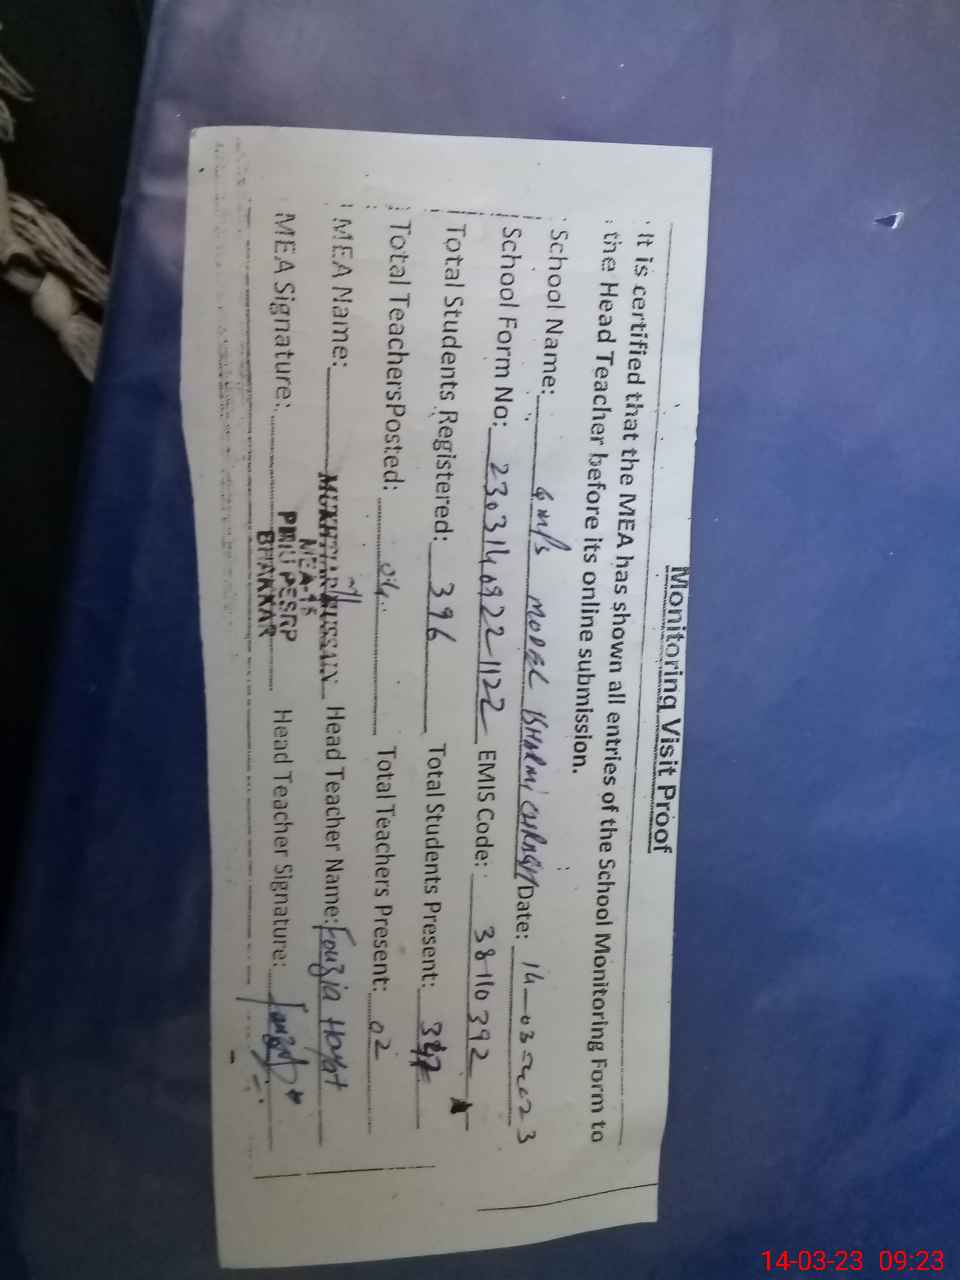 Monitoring Visit Proof
It is certified that the MEA has shown all entries of the School Monitoring Form to
the Head Teacher before its online submission.
School Name: MODEL Date: 14-03-2023
School Form No: 23031409221122 EMIS Code: 38110392
Total Students Registered: 396 Total Students Present:
Total TeachersPosted: 04 Total Teachers Present: 02
MEA Name: MUKHTIAR HUSSAIN Head Teacher Name: Fouzia Hayat
MEA-15
MEA Signature: PMIU PESRP Head Teacher Signature:
BHAKKAR
14-03-23 09:23